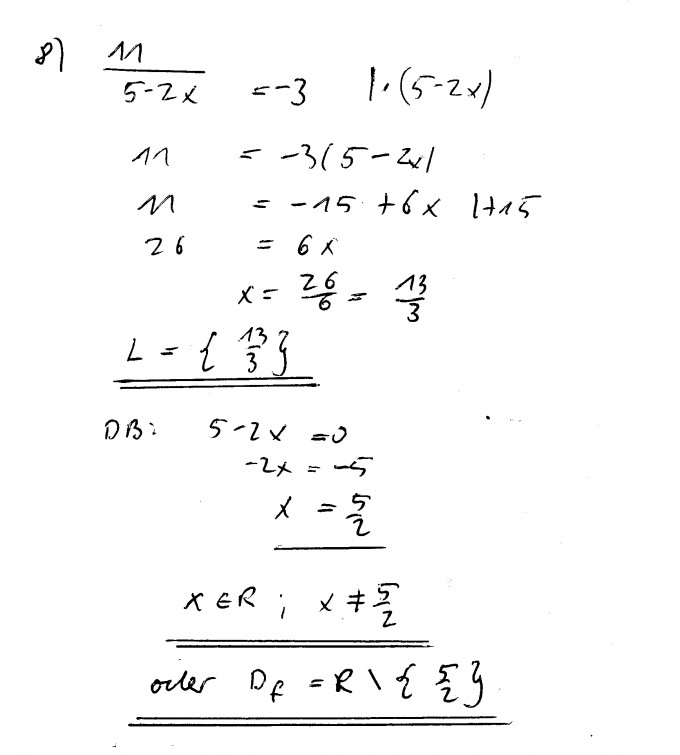 8) 11/(5-2x) = -3 | · (5-2x)
11 = -3(5-2x)
11 = -15 + 6x |+15
26 = 6x
x = 26/6 = 13/3
L = { 13/3 }
DB: 5-2x = 0
-2x = -5
x = 5/2
x ∈ R ; x ≠ 5/2
oder Df = R \ { 5/2 }